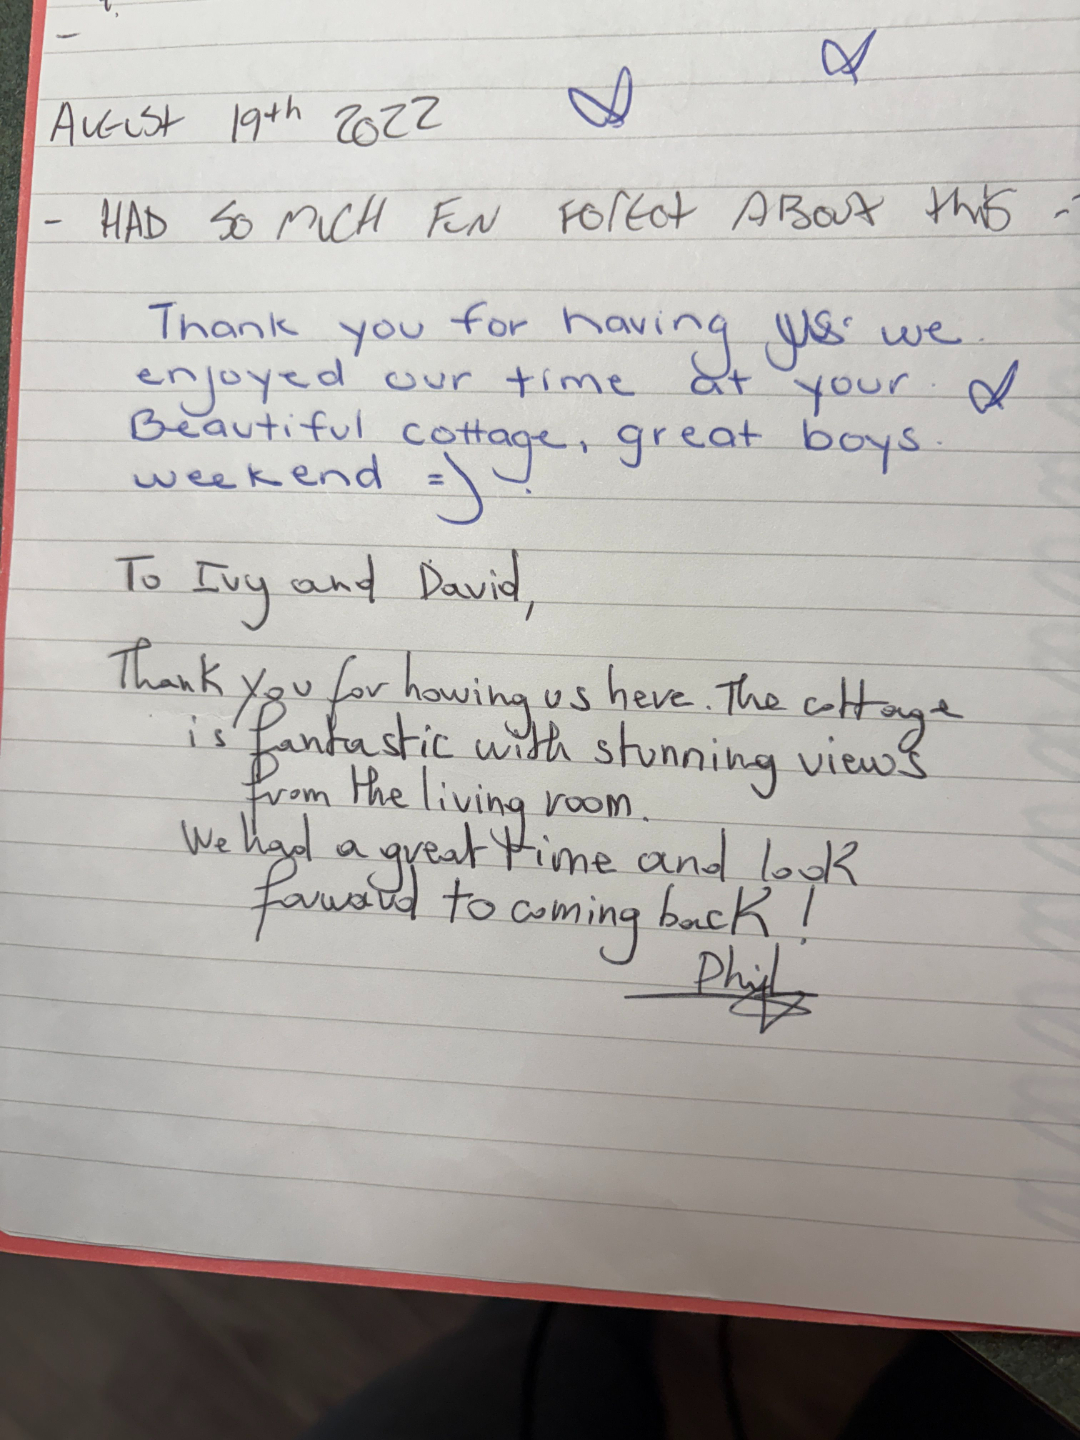 August 19th 2022
- HAD SO MUCH FUN FORGOT ABOUT this -
Thank you for having us we
enjoyed our time at your
Beautiful cottage, great boys
weekend =)
To Ivy and David,
Thank you for having us here. The cottage
is fantastic with stunning views
from the living room.
We had a great time and look
forward to coming back!
Phil